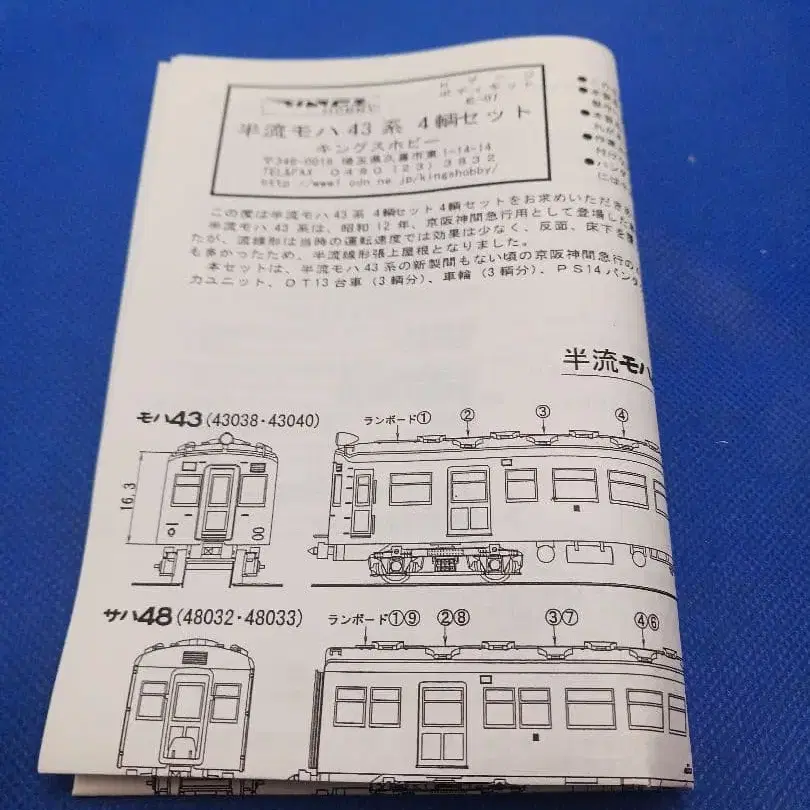 KINGS HOBBY
Nゲージ
ボディキット
半流モハ43系 4輌セット
キングスホビー
〒346-0016 埼玉県久喜市東1-14-14
TEL&FAX 0480(23)3832
http://www1.odn.ne.jp/kingshobby/
この度は半流モハ43系 4輌セット4輌セットをお求めいただき
半流モハ43系は、昭和12年、京阪神間急行用として登場した
たが、流線形は当時の運転速度では効果は少なく、反面、床下を覆
も多かったため、半流線形張上屋根となりました。
本セットは、半流モハ43系の新製間もない頃の京阪神間急行の
カユニット、DT13台車(3輌分)、車輪(3輌分)、PS14パンタ
半流モハ
モハ43(43038・43040)
ランボード① ② ③ ④
16.3
サハ48(48032・48033)
ランボード①⑨ ②⑧ ③⑦ ④⑥